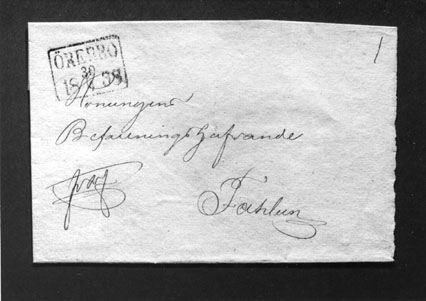 ÖREBRO
30
1838
1
Konungens
Befallningshafvande
Fahlun